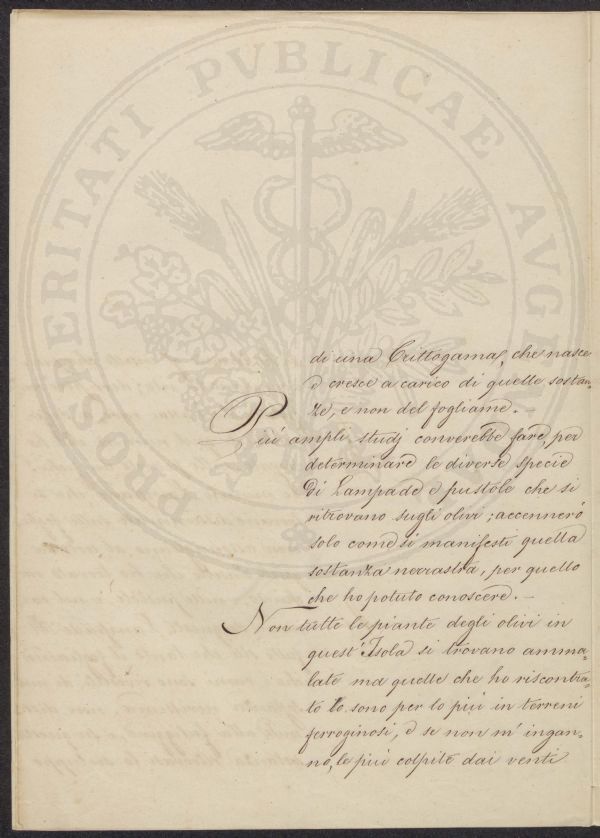 PROSPERITATI PVBLICAE AVGE
di una Crittogama, che nasce
e cresce a carico di quelle sostan=
ze, e non del fogliame. —
Più ampli studj converebbe fare, per
determinare le diverse specie
di Lampade e pustole che si
ritrovano sugli olivi; accennerò
solo come si manifesti quella
sostanza nerrastra, per quello
che ho potuto conoscere. —
Non tutte le piante degli olivi in
quest'Isola si trovano amma=
late ma quelle che ho riscontra=
to lo sono per lo più in terreni
ferroginosi, e se non m'ingan=
no, le più colpite dai venti